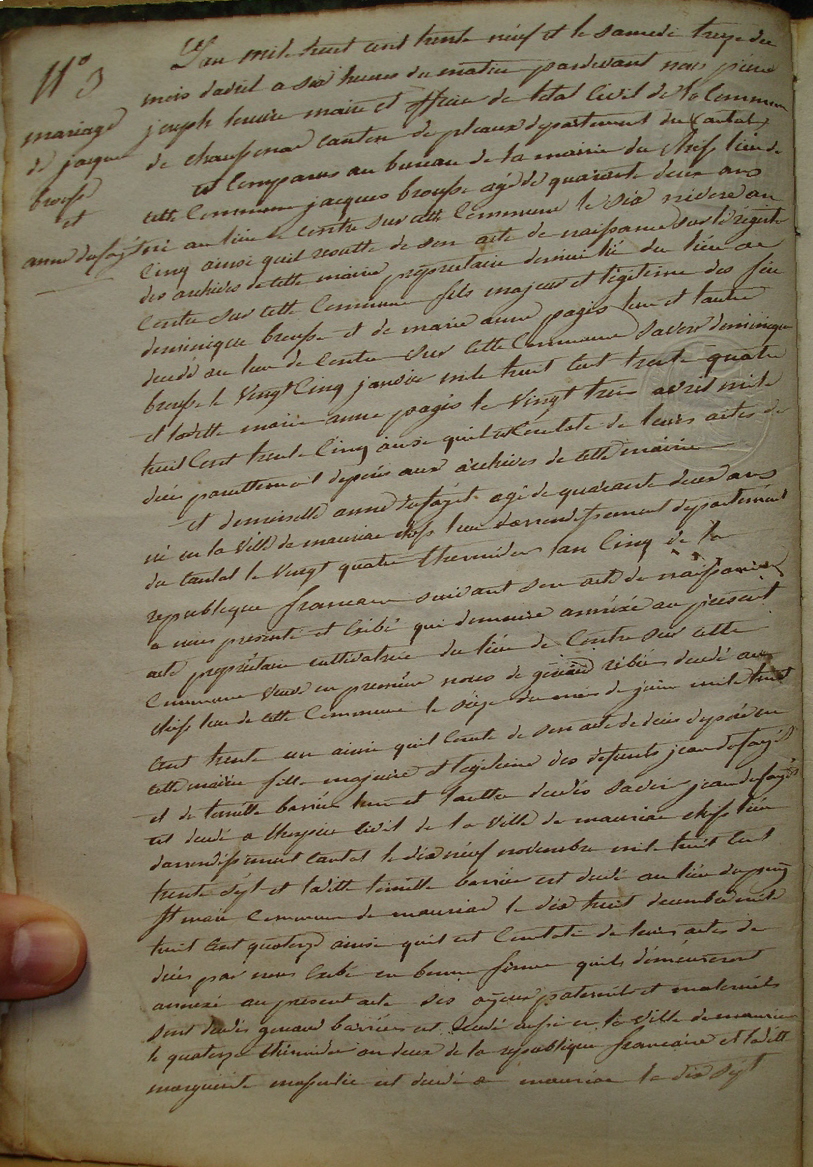 N° 3
mariage
de jacque
brousse
et
anne dufayet
L'an mil huit cent trente neuf et le samedi treize du
mois davril a six heures du matin pardevant nous pierre
joseph maire et officier de letat Civil de la Commune
de chaussenac canton de pleaux departement du Cantal,
est Comparus au bureau de la mairie du chef lieu de
cette Commune jacques brousse agé de quarante deux ans
né au lieu de Contre sur cette Commune le six nivose an
Cinq ainsi quil resulte de son acte de naissance sur le registre
des archives de cette mairie propriétaire domicilié du lieu de
Contre sur cette Commune fils majeur et légitime des feu
dominique brousse et de marie anne pagés lun et lautre
decedé au lieu de Contre sur cette Commune savoir dominique
brousse le vingt Cinq janvier mil huit Cent trente quatre
et ladite marie anne pagés le vingt trois avril mil
huit Cent trente Cinq ainsi quil est Constaté de leurs actes de
décés pareillement deposés aux archives de cette mairie
et demoiselle anne dufayet agé de quarante deux ans
né en la ville de mauriac chef lieu darrondissement departement
du Cantal le vingt quatre thermidor lan Cinq de la
republique francaise suivant son acte de naissance
a nous presenté et Exibé qui demeure annéxé au présent
acte propriétaire cultivatrice du lieu de Contre sur cette
Commune veuve en premiere noces de ribier decedé au
chef lieu de cette Commune le seize du mois de juin mil huit
Cent trente un ainsi quil Conste de son acte de decés deposé en
cette mairie fille majeure et légitime des defunts jean dufayet
et de barrier lun et lautre decedés savoir jean dufayet
est decedé a lhospice Civil de la ville de mauriac chef lieu
darrondissement Cantal le dix neuf novembre mil huit Cent
trente sept et ladite barrier est decedé au lieu du puy
St mari Commune de mauriac le dix huit decembre mil
huit Cent quatorze ainsi quil est Constaté de leurs actes de
décés par nous Exibé en bonne forme quils démeureront
annexé au présent acte ses ayeux paternels et maternels
sont decedés barrier est decedé en la ville de mauriac
le quatorze thermidor an deux de la republique francaise et ladite
marguerite est decedé a mauriac le dix sept